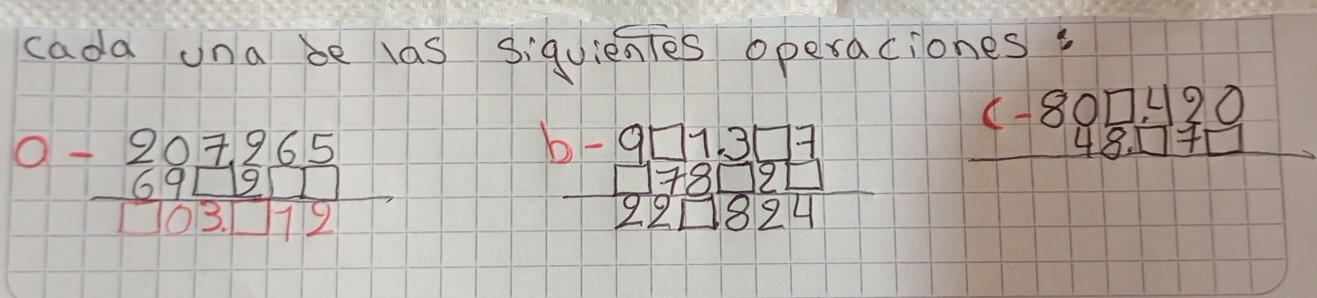 cada una de las siguientes operaciones:
a- 207.265
69□2□□
□03.□12
b- 9□1.3□7
□78□2□
22□824
c- 80□.420
48.□7□